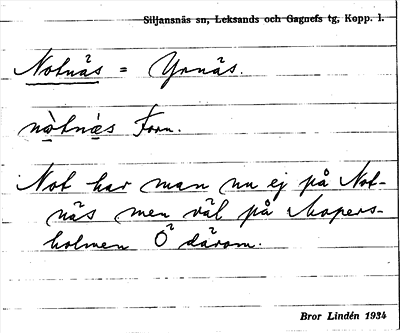 Siljansnäs sn, Leksands och Gagnefs tg, Kopp. l.
Notnäs = Yrnäs.
nòtnäs Forn.
Not har man nu ej på Not-
näs men väl på Kapers-
holmen Ö därom.
Bror Lindén 1934